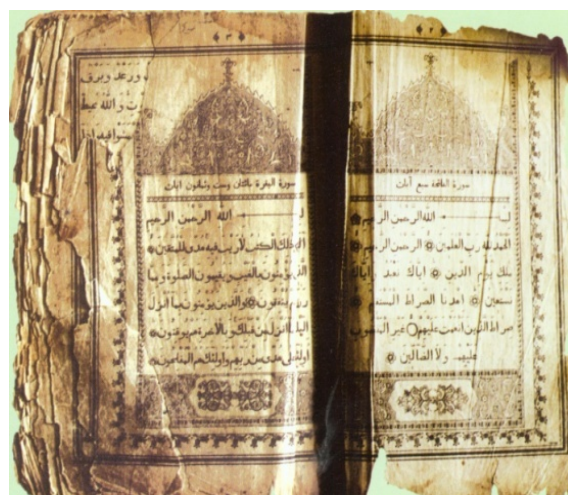 ٢
سورة الفاتحة سبع آيات
بسم الله الرحمن الرحيم
الحمد لله رب العلمين الرحمن الرحيم
ملك يوم الدين اياك نعبد واياك
نستعين اهدنا الصراط المستقيم
صراط الذين انعمت عليهم غير المغضوب
عليهم ولا الضالين
٣
ورعد وبرق
والله محيط
فيه واذا
سورة البقرة مائتان وست وثمانون ايات
بسم الله الرحمن الرحيم
الم ذلك الكتب لا ريب فيه هدى للمتقين
الذين يؤمنون بالغيب ويقيمون الصلوة ومما
رزقنهم ينفقون والذين يؤمنون بما انزل
اليك وما انزل من قبلك وبالاخرة هم يوقنون
اولئك على هدى من ربهم واولئك هم المفلحون